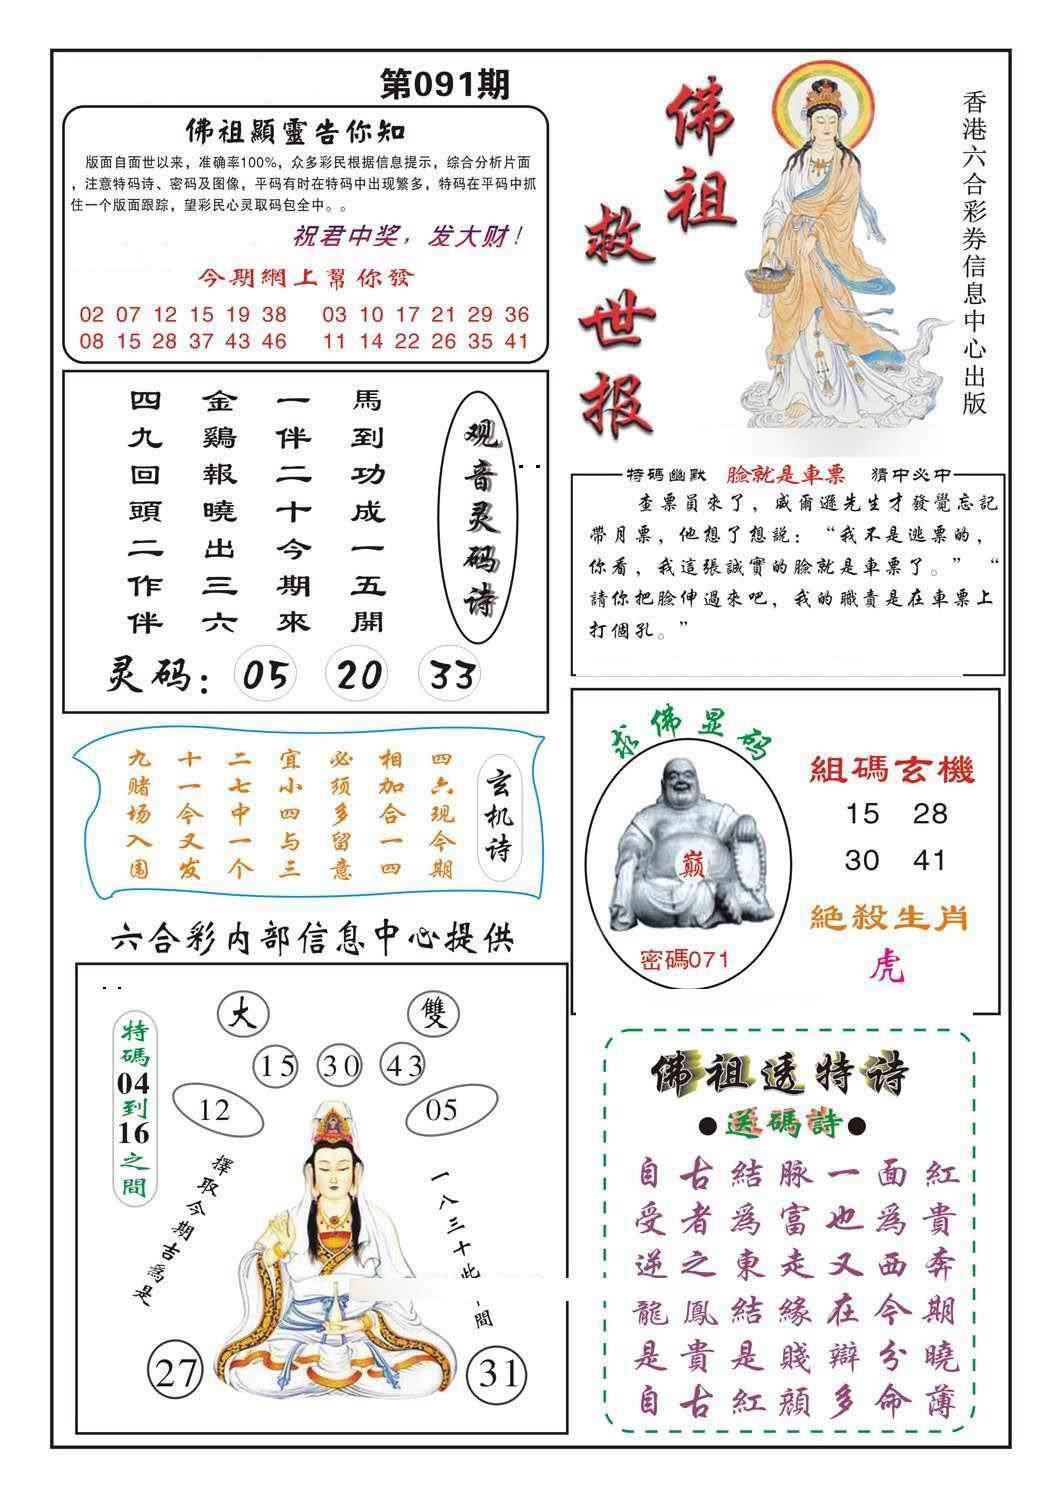 第091期
佛祖顯靈告你知
版面自面世以来，准确率100%，众多彩民根据信息提示，综合分析片面
，注意特码诗、密码及图像，平码有时在特码中出现繁多，特码在平码中抓
住一个版面跟踪，望彩民心灵取码包全中。。
祝君中奖，发大财！
今期網上幫你發
02 07 12 15 19 38 03 10 17 21 29 36
08 15 28 37 43 46 11 14 22 26 35 41
佛祖
救世报
香港六合彩券信息中心出版
观音灵码诗
馬到功成一五開
一伴二十今期來
金鷄報曉出三六
四九回頭二作伴
灵码：05 20 33
特碼幽默 臉就是車票 猜中必中
查票員來了，威爾遜先生才發覺忘記
帶月票，他想了想説：“我不是逃票的，
你看，我這張誠實的臉就是車票了。” “
請你把臉伸過來吧，我的職責是在車票上
打個孔。”
玄机诗
四六现今期
相加合一四
必须多留意
宜小四与三
二七中一个
十一今又发
九赌场入围
求佛显码
巅
密碼071
組碼玄機
15 28
30 41
絕殺生肖
虎
六合彩内部信息中心提供
特碼04到16之間
大 雙
15 30 43
12 05
擇取今期吉爲是
一八三十此間
27 31
佛祖透特诗
●送碼詩●
自古結脉一面紅
受者爲富也爲貴
逆之東走又西奔
龍鳳結緣在今期
是貴是賤辯分曉
自古紅顔多命薄